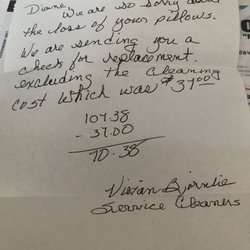 Diane,
We are so sorry about
the loss of your pillows.
We are sending you a
check for replacement.
excluding the cleaning
cost which was $37.00
107.38
- 37.00
70.38
Vivian Bjornlie
Service Cleaners